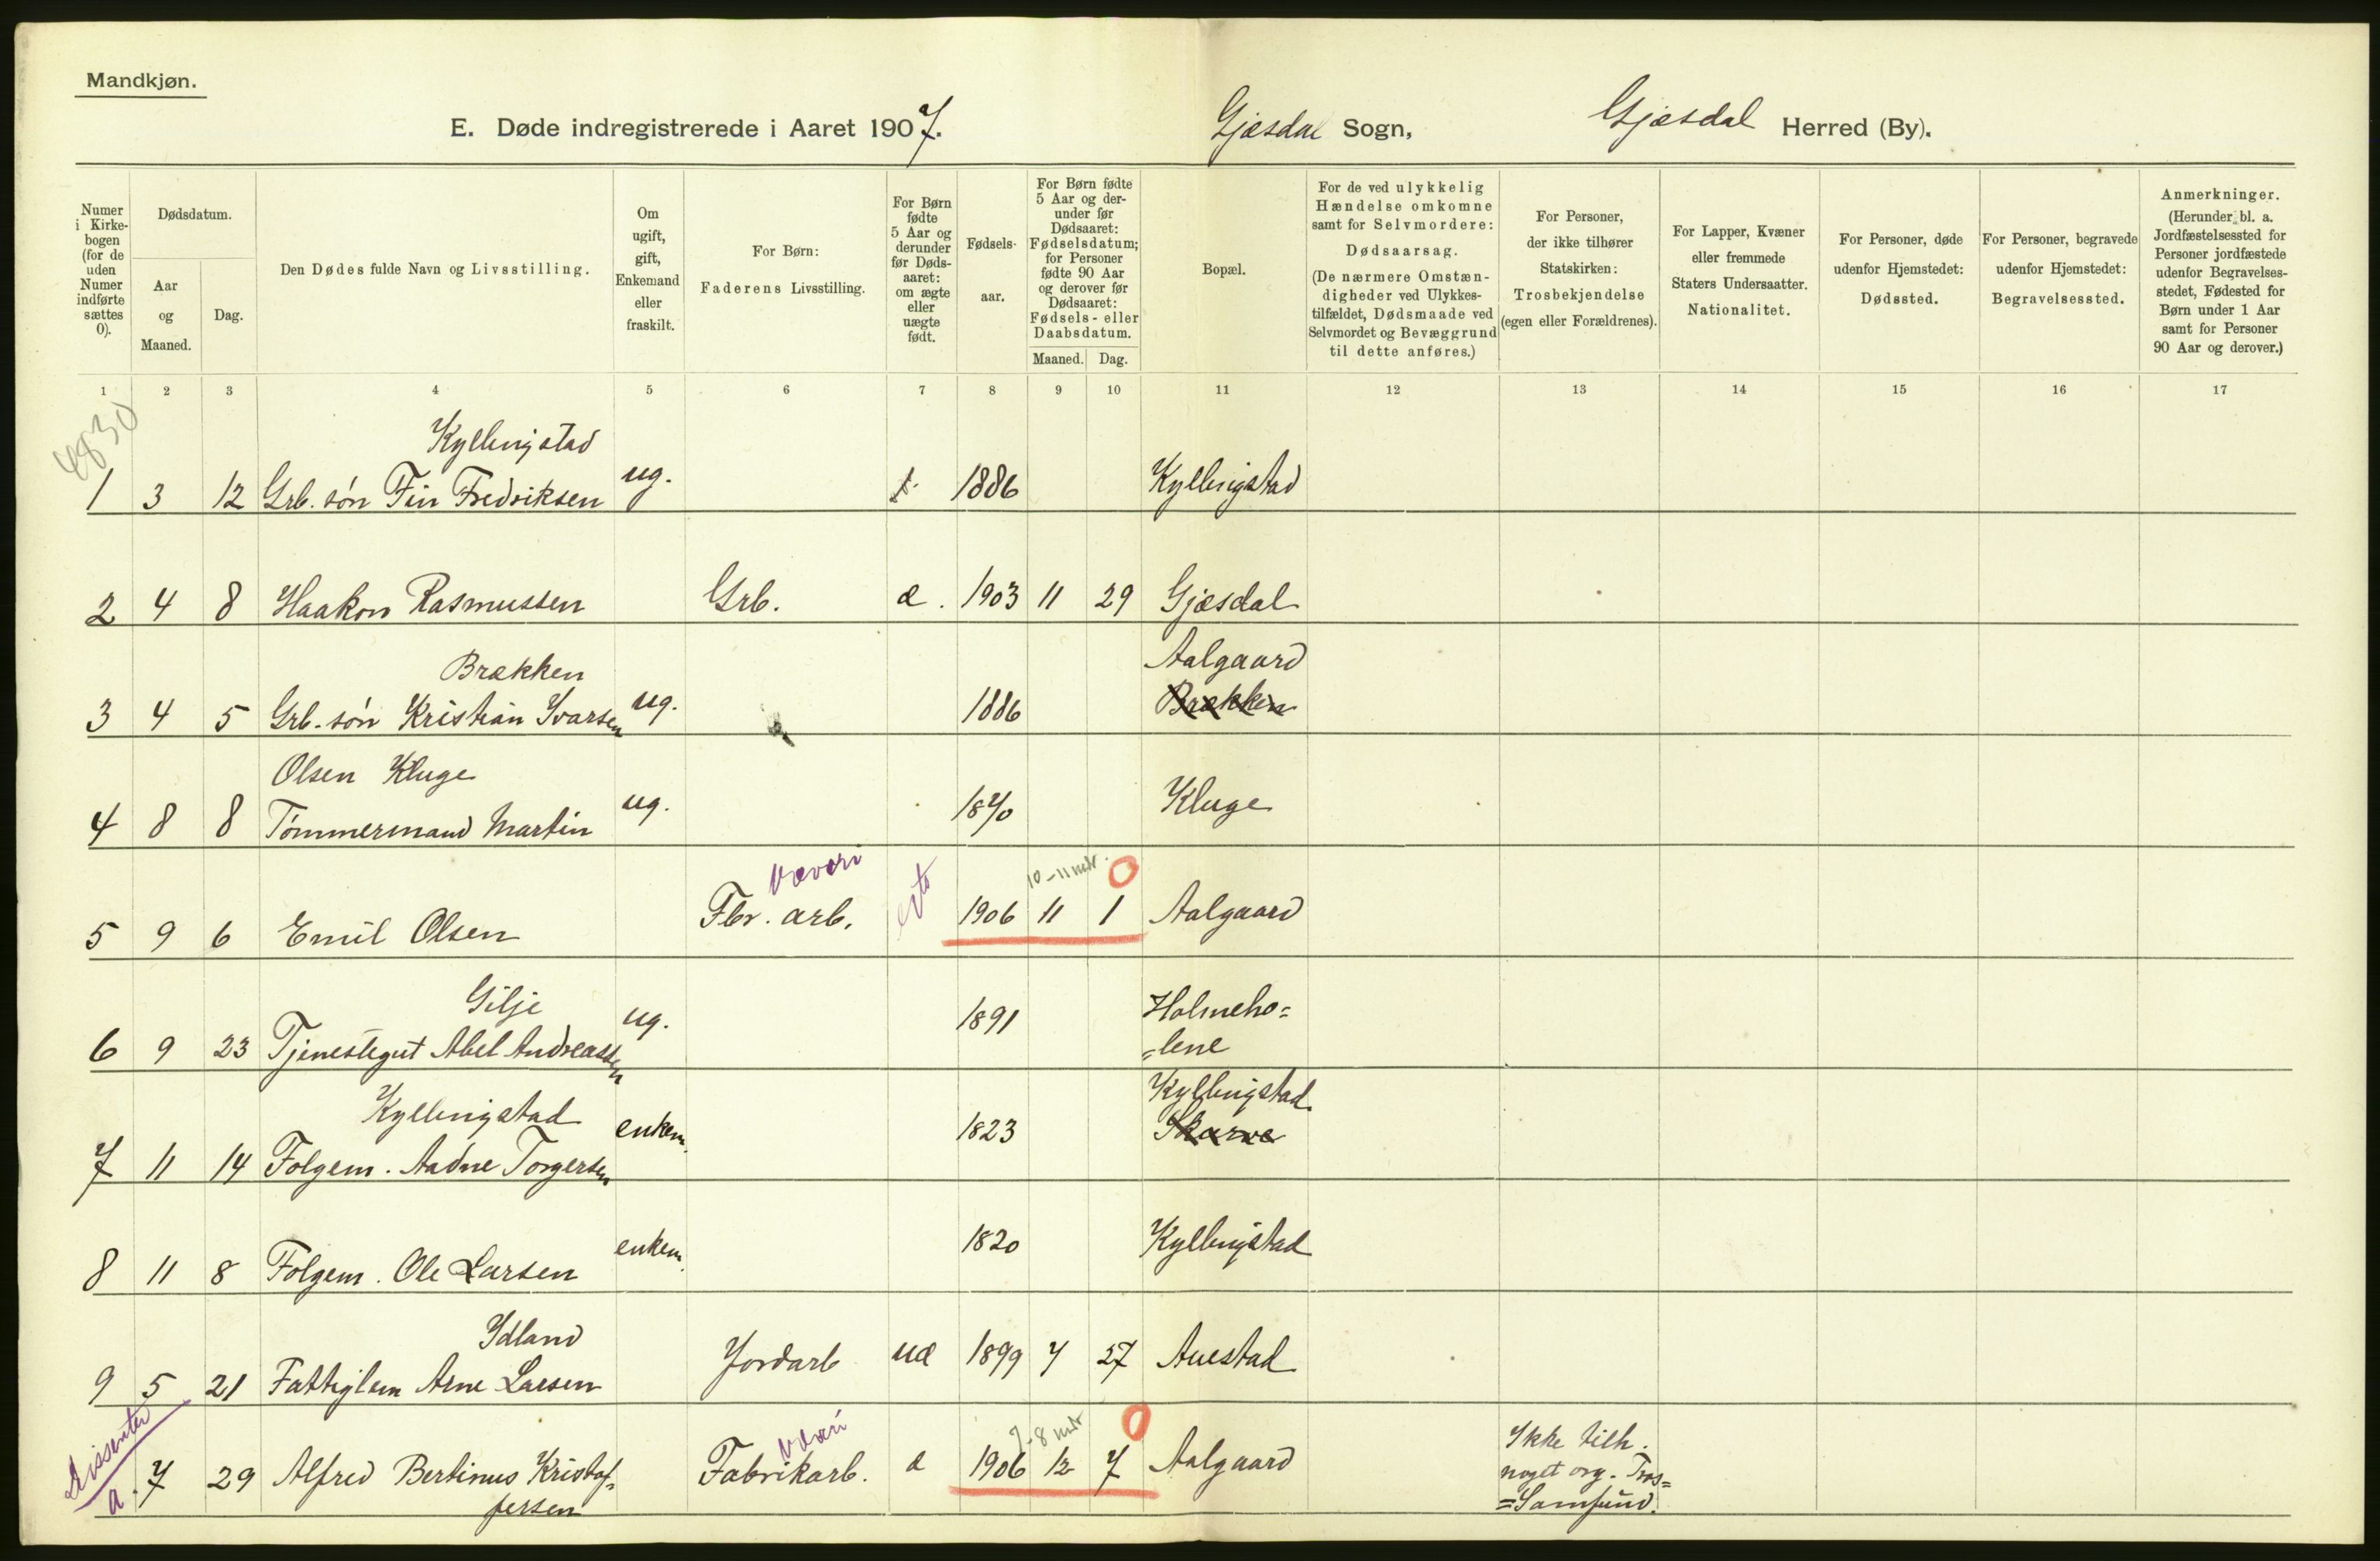 Mandkjøn.
E. Døde indregistrerede i Aaret 1907. Gjæsdal Sogn, Gjæsdal Herred (By).
Numer i Kirke-bogen (for de uden Numer indførte sættes 0).
Dødsdatum.
Aar og Maaned.
Dag.
Den Dødes fulde Navn og Livsstilling.
Om ugift, gift, Enkemand eller fraskilt.
For Børn: Faderens Livsstilling.
For Børn fødte 5 Aar og derunder før Døds-aaret: om ægte eller uægte født.
Fødsels-aar.
For Børn fødte 5 Aar og der-under før Dødsaaret: Fødselsdatum; for Personer fødte 90 Aar og derover før Dødsaaret: Fødsels- eller Daabsdatum.
Maaned. Dag.
Bopæl.
For de ved ulykkelig Hændelse omkomne samt for Selvmordere: Dødsaarsag. (De nærmere Omstæn-digheder ved Ulykkes-tilfældet, Dødsmaade ved Selvmordet og Bevæggrund til dette anføres.)
For Personer, der ikke tilhører Statskirken: Trosbekjendelse (egen eller Forældrenes).
For Lapper, Kvæner eller fremmede Staters Undersaatter. Nationalitet.
For Personer, døde udenfor Hjemstedet: Dødssted.
For Personer, begravede udenfor Hjemstedet: Begravelsessted.
Anmerkninger. (Herunder bl. a. Jordfæstelsessted for Personer jordfæstede udenfor Begravelses-stedet, Fødested for Børn under 1 Aar samt for Personer 90 Aar og derover.)
1 2 3 4 5 6 7 8 9 10 11 12 13 14 15 16 17
4830
Kyllingstad
1 3 12 Grb. søn Fin Fredriksen ug. 1886 Kyllingstad
2 4 8 Haakon Rasmussen Grb. æ. 1903 11 29 Gjæsdal
Brækken Aalgaard
3 4 5 Grb. søn Kristian Ivarsen ug. 1886 Brækken
Olsen Kluge
4 8 8 Tømmermand Martin ug. 1840 Kluge
Væveri 10-11 mdr. 0
5 9 6 Emil Olsen Fbr. arb. 1906 11 1 Aalgaard
Gilje Holmeho=
6 9 23 Tjenestegut Abel Andreassen ug. 1891 =lene
Kyllingstad Kyllingstad
7 11 14 Folgem. Aadne Torgersen enkem. 1823 Skarve
8 11 8 Folgem. Ole Larsen enkem. 1820 Kyllingstad
Ydland
9 5 21 Fattiglem Arne Larsen Jordarb uæ 1899 7 27 Auestad
dissenter Væveri 7-8 mdr 0 Ikke tilh.
a. 7 29 Alfred Bertinus Kristof= Fabrikarb. æ 1906 12 7 Aalgaard noget org. Tros=
fersen =Samfund.